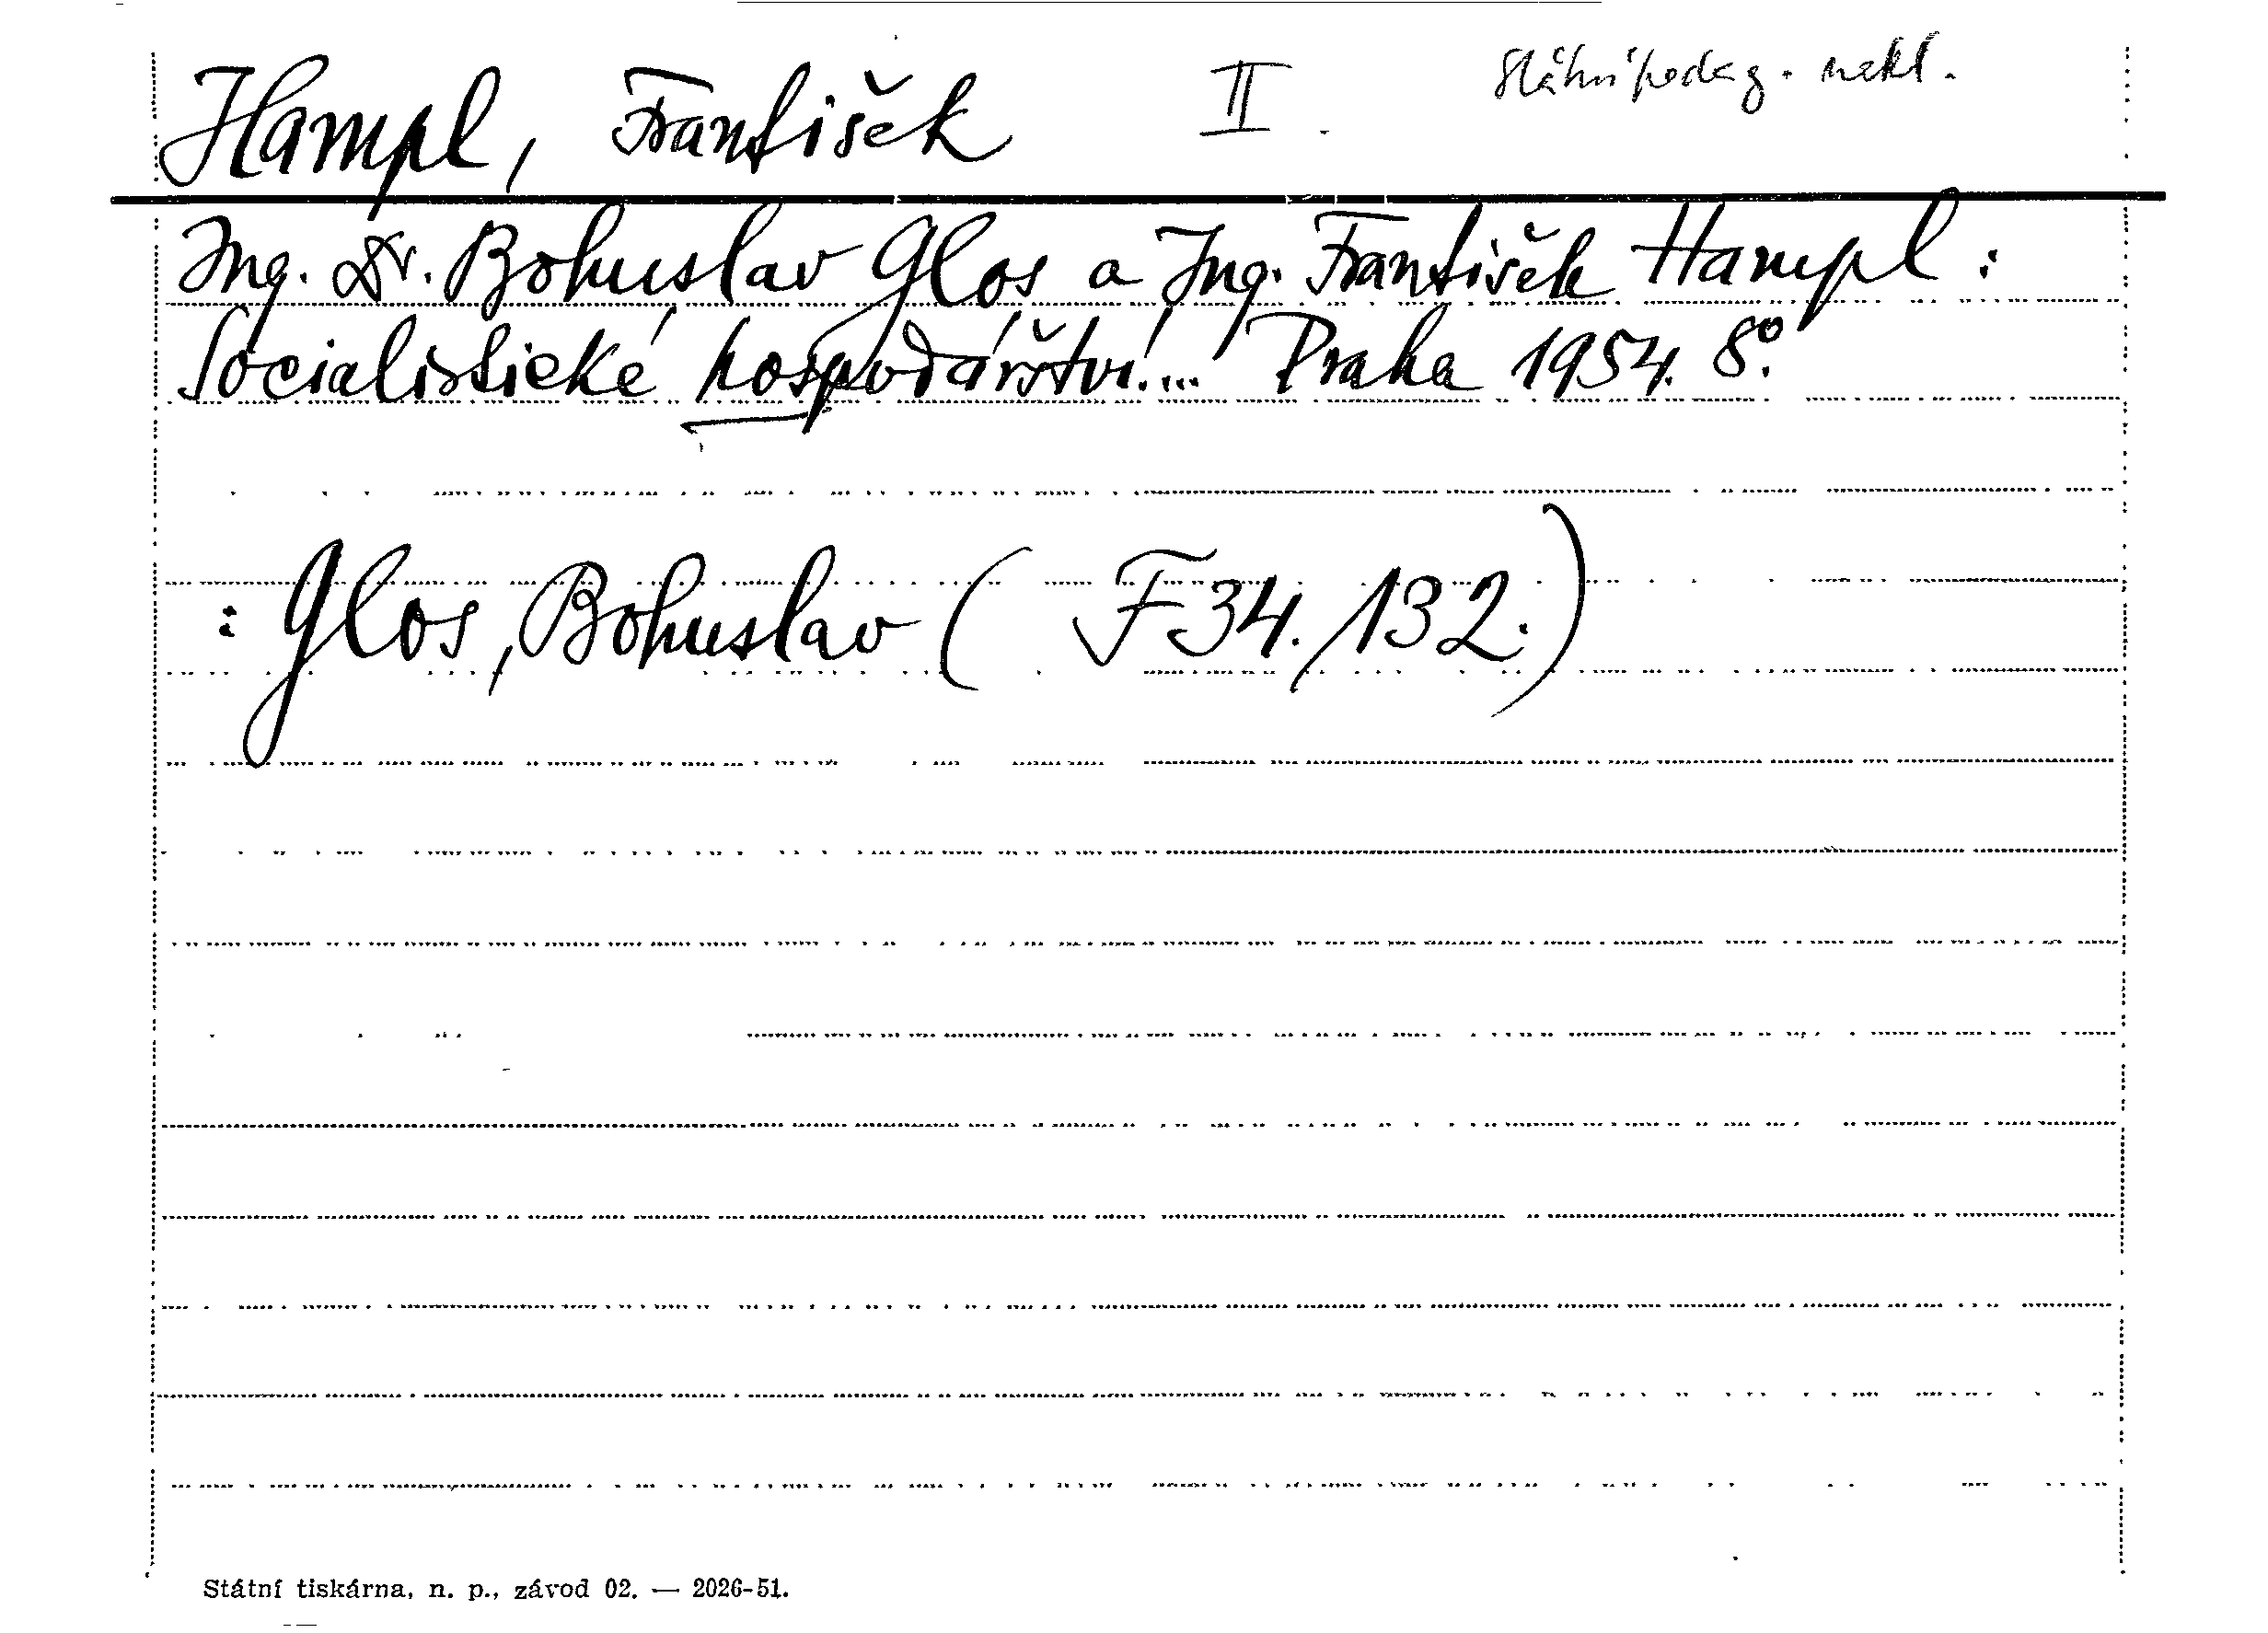 Hampl, František II. Státní pedag. nakl.
Ing. Dr. Bohuslav Glos a Ing. František Hampl :
Socialistické hospodářství.... Praha 1954. 8°.
: Glos, Bohuslav ( F 34./132.)
Státní tiskárna, n. p., závod 02. — 2026-51.